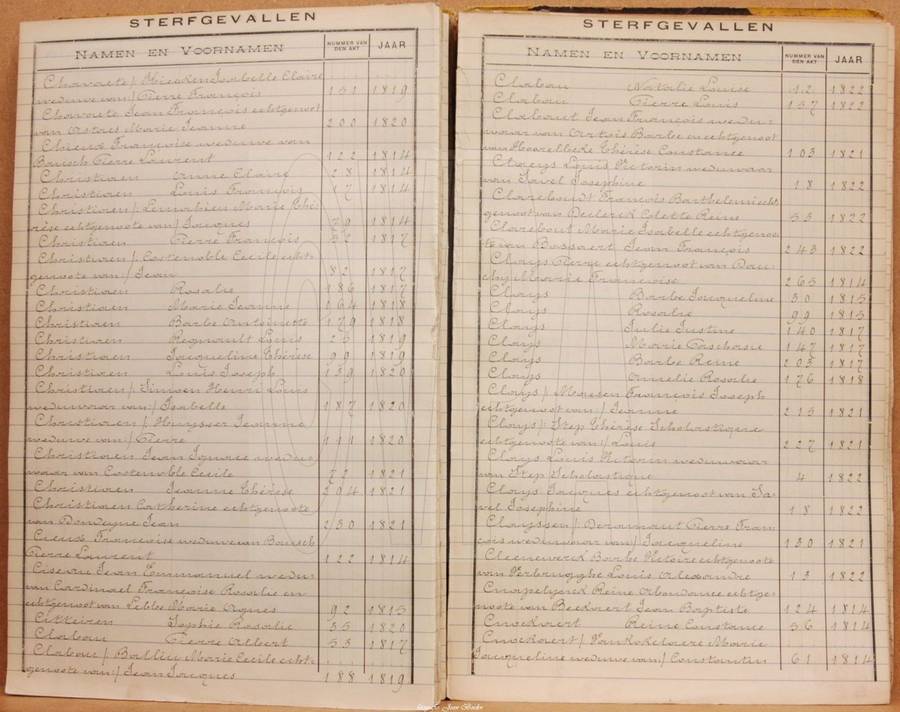 STERFGEVALLEN
NAMEN EN VOORNAMEN NUMMER VAN DEN AKT JAAR
Chavaete / Isabelle Claire
weduwe van / Pierre François 151 1819
Chavaete Jean François echtgenoot
van Marie Jeanne 200 1820
Chiens Françoise weduwe van
Bausch Pierre Laurent 122 1814
Christiaen Anne Claire 28 1814
Christiaen Louis François 17 1814
Christiaen / Marie Thé-
rèse echtgenoote van / Jacques 79 1814
Christiaen Pierre François 52 1817
Christiaen / Costenoble Cecile echt-
genoote van / Jean 82 1817
Christiaen Rosalie 186 1817
Christiaen Marie Jeanne 164 1818
Christiaen Barbe Antoinette 179 1818
Christiaen Regnault Louis 25 1819
Christiaen Jacqueline Thérèse 99 1819
Christiaen Louis Joseph 139 1820
Christiaen / Simoen Henri Louis
weduwaar van / Isabelle 187 1820
Christiaen / Huyssen Jeanne
weduwe van / Pierre 111 1820
Christiaen Jean Ignace wedu-
waar van Costenoble Cecile 72 1821
Christiaen Jeanne Thérèse 294 1821
Christiaen Catherine echtgenoote
van Jean 250 1821
Françoise weduwe van Bausch
Pierre Laurent 122 1814
Ciseau Jean Emmanuel wedu-
van Cardinael Françoise Rosalie en
echtgenoot van Marie Agnes 92 1815
Sophie Rosalie 35 1820
Clabau Pierre Albert 53 1817
Clabau / Baillieu Marie Cecile echt-
genoote van / Jean Jacques 188 1819
STERFGEVALLEN
NAMEN EN VOORNAMEN NUMMER VAN DEN AKT JAAR
Clabau Natalie Louise 12 1822
Clabau Pierre Louis 157 1822
Clabaut Jean François wedu-
waar van Artois Barbe en echtgenoot
van Thérèse Constance 103 1821
Claeys Louis Victorin weduwaar
van Josephine 18 1822
François Barthelemi echt-
genoot van Declerck Colette Reine 55 1822
Clarebout Marie Isabelle echtgenoo-
te van Bossaert Jean François 243 1822
Claeys Pierre echtgenoot van Dau-
chy Marie Françoise 265 1814
Claeys Barbe Jacqueline 30 1815
Claeys Rosalie 99 1815
Claeys Julie Justine 140 1817
Claeys Marie Paschase 147 1817
Claeys Barbe Reine 203 1817
Claeys Amelie Rosalie 176 1818
Claeys / François Joseph
echtgenoot van / Jeanne 215 1821
Claeys / Step Thérèse Scholastique
echtgenoote van / Louis 227 1821
Claeys Louis Victorin weduwaar
van Step Scholastique 4 1822
Claeys Jacques echtgenoot van
Josephine 18 1822
Claeyssen / Deramout Pierre Fran-
cois weduwaar van / Jacqueline 130 1821
Cleenewerck Barbe Victoire echtgenoote
van Verbrugghe Louis Alexandre 13 1822
Cnapelynck Reine Abondance echtge-
noote van Beekaert Jean Baptiste 124 1814
Cnockaert Reine Constance 56 1814
Cnockaert / Marie
Jacqueline weduwe van / Constantin 61 1814